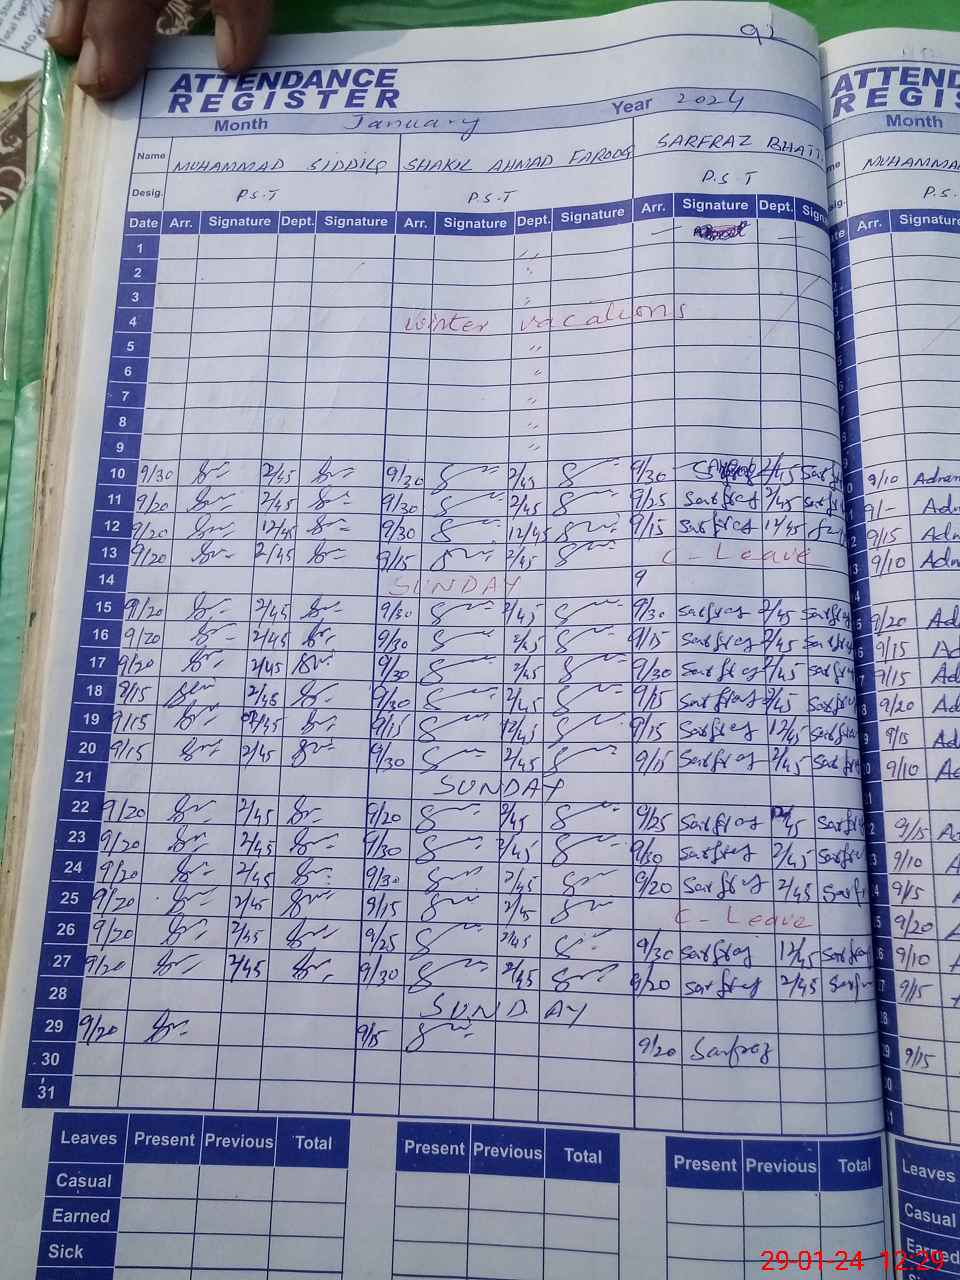 92
ATTENDANCE
REGISTER
Month January Year 2024
Name MUHAMMAD SIDDIQ SHAKIL AHMAD FAROOQ SARFRAZ BHATTI
Desig. P.S.T P.S.T P.S.T
Date Arr. Signature Dept. Signature Arr. Signature Dept. Signature Arr. Signature Dept. Sign
1
2
3
4 Winter vacations
5
6
7
8
9
10 9/30 2/45 9/30 2/45 9/30 2/45
11 9/20 2/45 9/30 2/45 9/25 Sarfraz 2/45 Sarfraz
12 9/20 12/45 9/30 12/45 9/15 Sarfraz 12/45
13 9/20 2/45 9/15 2/45 C-Leave
14 SUNDAY 9
15 9/20 2/45 9/30 2/45 9/30 Sarfraz 2/45 Sarfraz
16 9/20 2/45 9/30 2/45 9/15 Sarfraz 2/45 Sarfraz
17 9/20 2/45 9/30 2/45 9/30 Sarfraz 2/45 Sarfraz
18 9/15 2/45 9/30 2/45 9/15 Sarfraz 2/45 Sarfraz
19 9/15 9/15 12/45 9/15 Sarfraz 12/45 Sarfraz
20 9/15 2/45 9/30 2/45 9/15 Sarfraz 2/45 Sarfraz
21 SUNDAY
22 9/20 2/45 9/20 2/45 9/25 Sarfraz Sarfraz
23 9/20 2/45 9/30 2/45 9/30 Sarfraz 2/45 Sarfraz
24 9/20 2/45 9/30 2/45 9/20 Sarfraz 2/45 Sarfraz
25 9/20 2/45 9/15 2/45 C-Leave
26 9/20 2/45 9/25 2/45 9/30 Sarfraz 12/45 Sarfraz
27 9/20 2/45 9/30 2/45 9/20 Sarfraz 2/45 Sarfraz
28 SUNDAY
29 9/20 9/15 9/20 Sarfraz
30
31
Leaves Present Previous Total Present Previous Total Present Previous Total
Casual
Earned
Sick
ATTEND
REGIS
Month
MUHAMMA
P.S.
Arr. Signature
9/10 Adnan
9/- Adn
9/15 Adn
9/10 Adn
9/20 Ad
9/15 Ad
9/15 Ad
9/20 Ad
9/15 Ad
9/10 Ad
9/15 A
9/10 A
9/15 A
9/20 A
9/10 A
9/15
9/15
Leaves
Casual
Earned
29-01-24 12:29